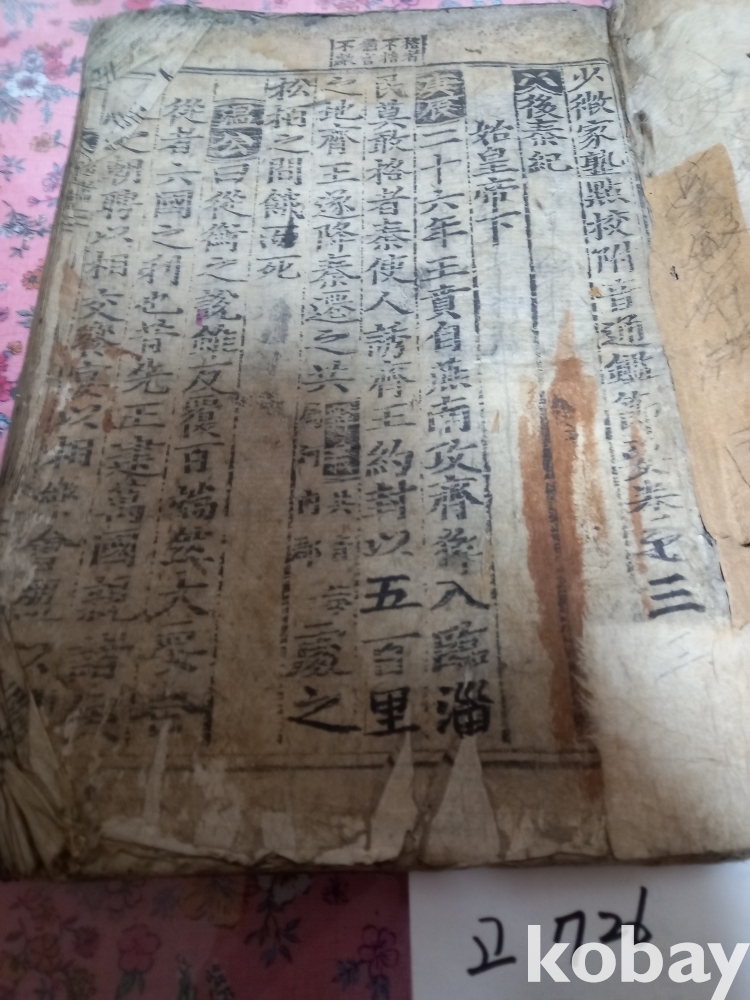 少微家塾點校附音通鑑節要卷之三
三
後秦紀
始皇帝下
庚辰二十六年王賁自燕南攻齊猝入臨淄
民莫敢格者秦使人誘齊王約封以五百里
之地齊王遂降秦遷之共
共音恭
屬河內郡
處之
松栢之間餓而死
溫公曰從衡之說雖反覆百端然大要合
從者六國之利也昔先王建萬國親諸侯
朝聘以相交饗宴以相樂會盟以
格者
고 726
kobay